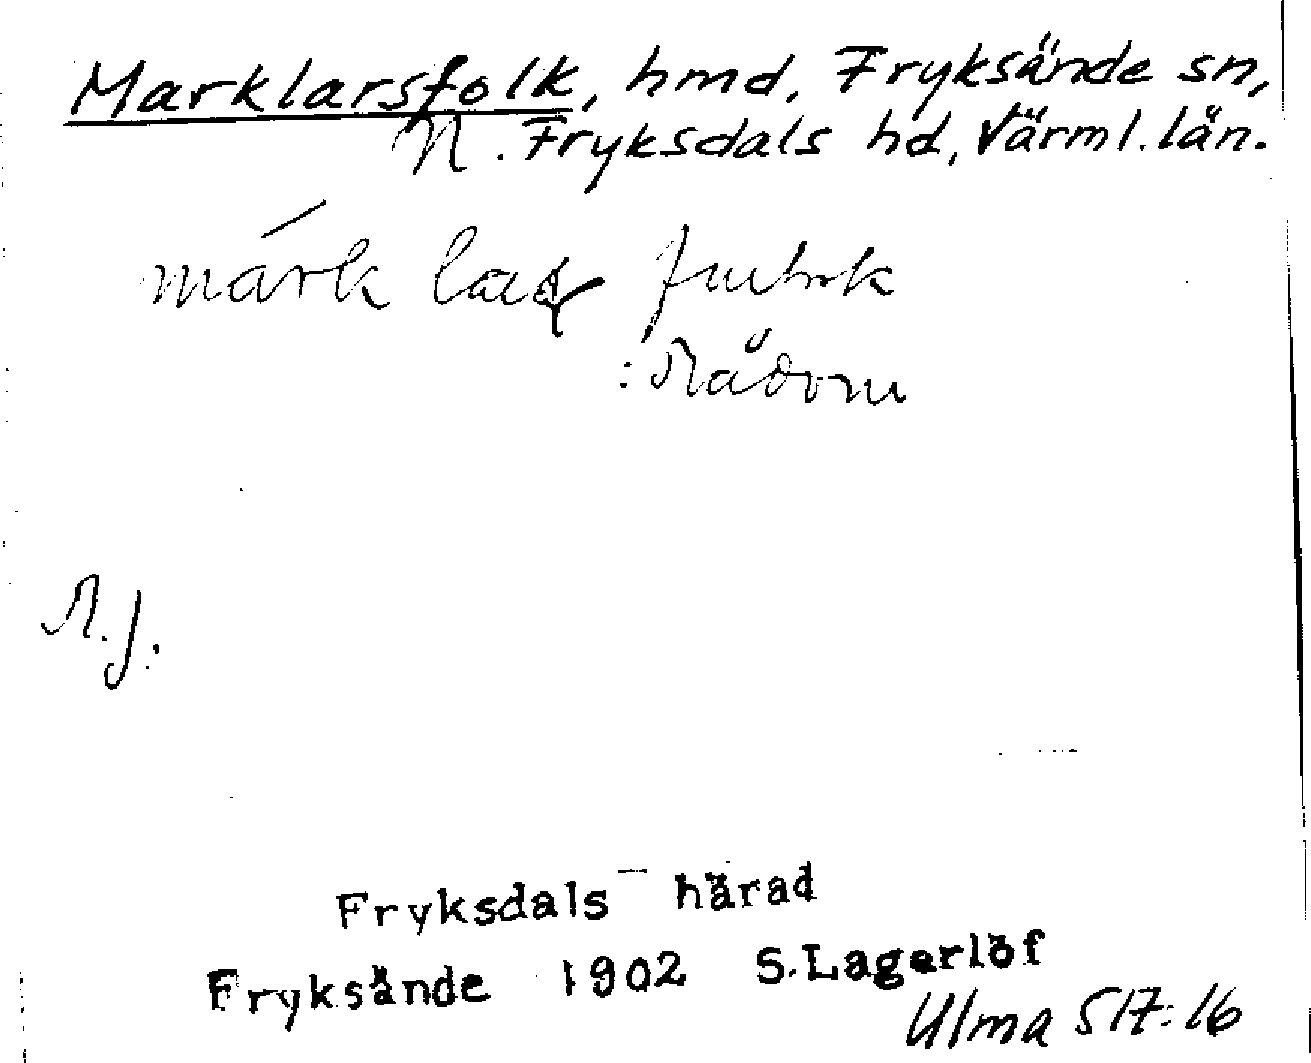 Marklarsfolk, hmd, Fryksände sn,
N. Fryksdals hd, Värml. län.
márk
: Rådom
R.J.
Fryksdals härad
Fryksände 1902 S.Lagerlöf
Ulma 517:16